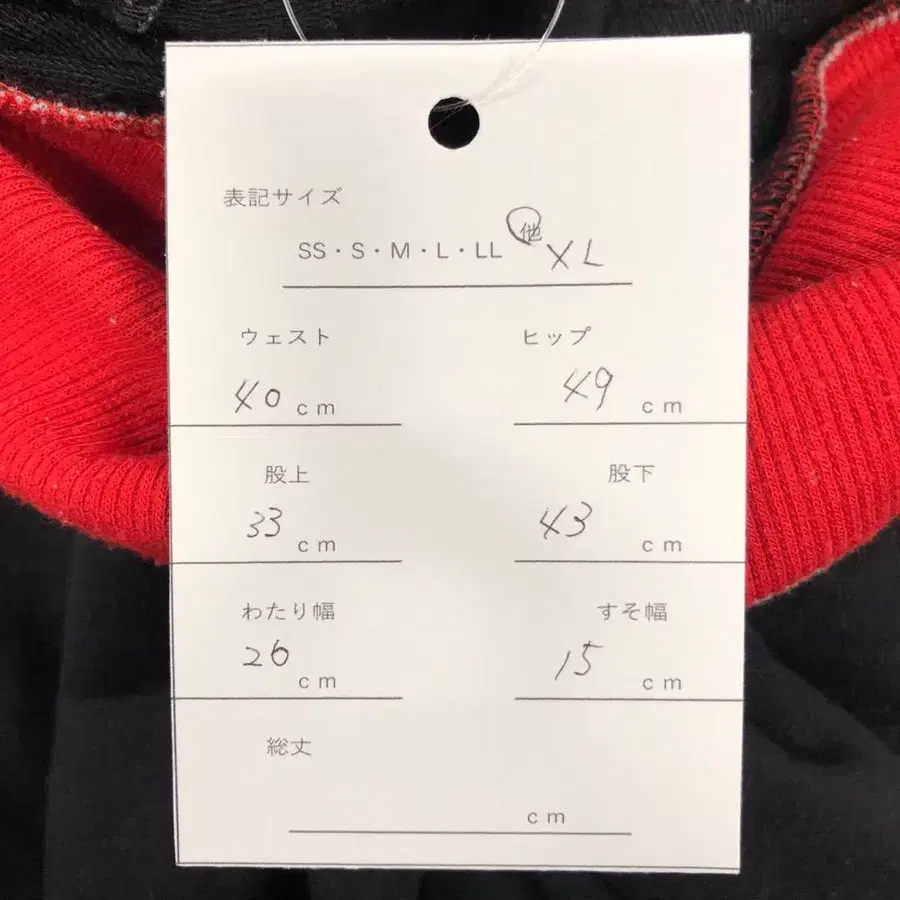 表記サイズ
SS・S・M・L・LL 他 XL
ウェスト ヒップ
40 cm 49 cm
股上 股下
33 cm 43 cm
わたり幅 すそ幅
26 cm 15 cm
総丈
cm